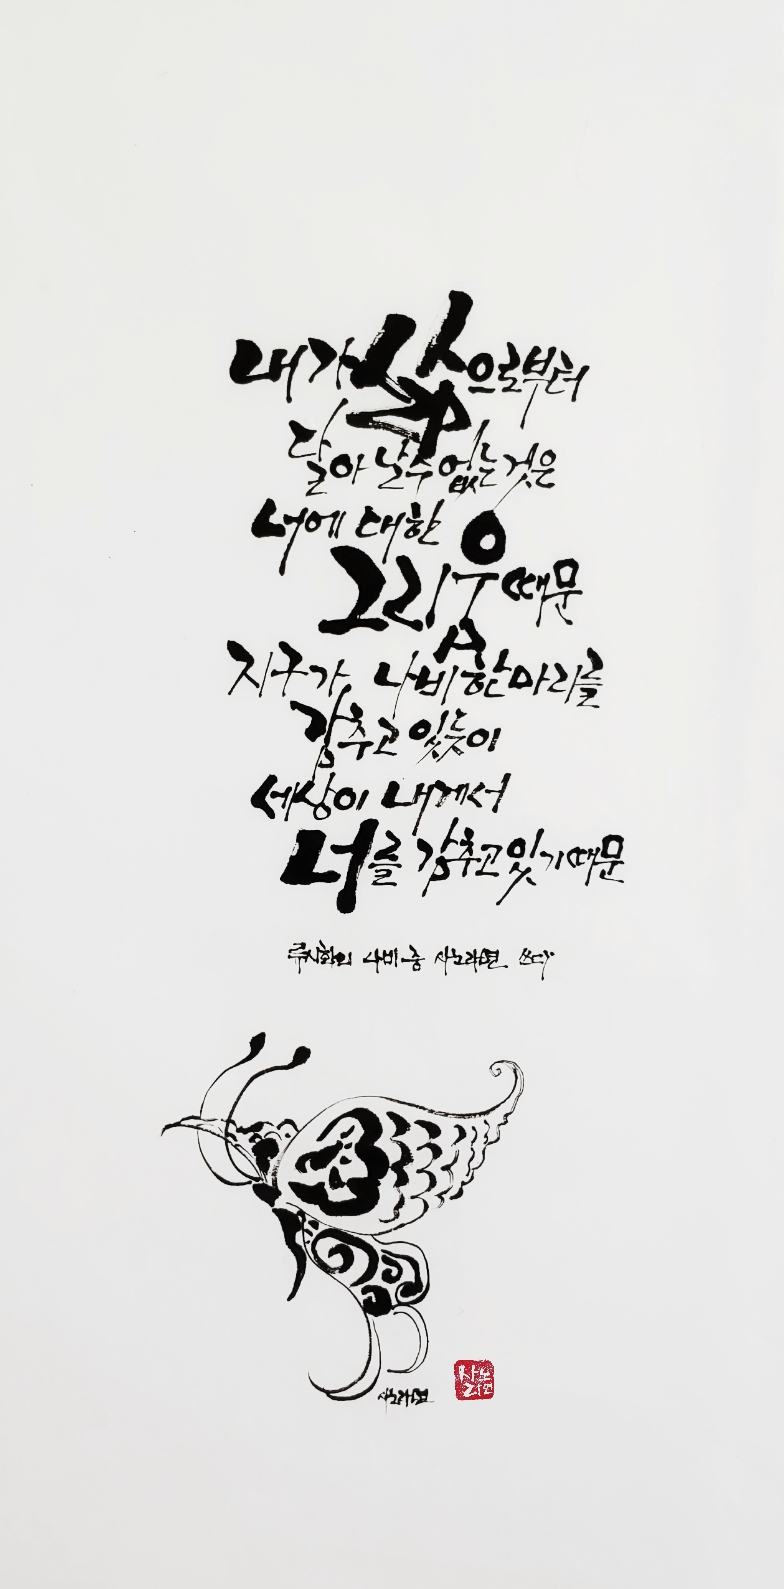 내가 삶으로부터
달아 날수 없는 것은
너에 대한
그리움 때문
지구가 나비 한마리를
감추고 있듯이
세상이 내게서
너를 감추고 있기 때문
류시화의 나비 중 사노라면 쓰다
사노라면
사노
라면